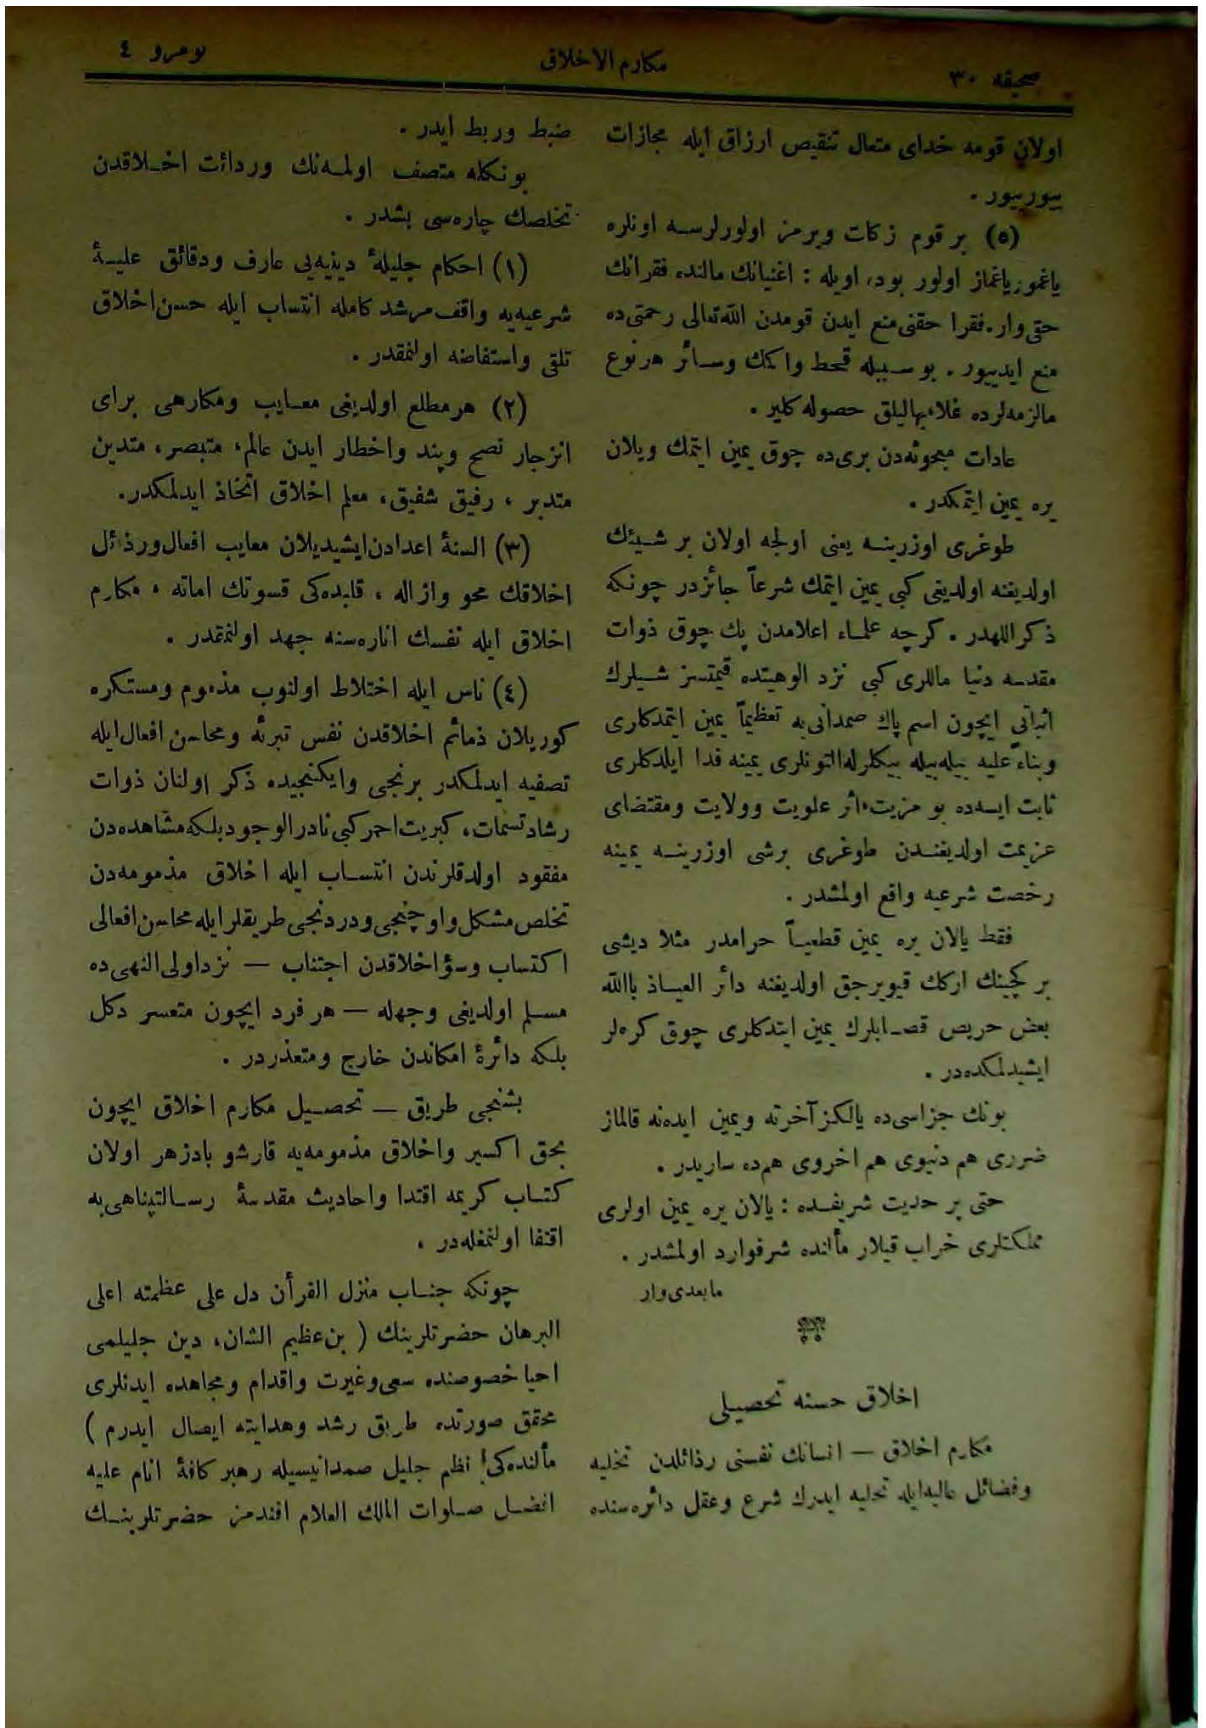 صحیفه ٣٠
مكارم الاخلاق
نومرو ٤
اولان قومه خدای متعال تنقیص ارزاق ایله مجازات
بیورییور .
(٥) بر قوم زكات ویرمز اولورلرسه اونلره
یاغمور یاغماز اولور بوده اویله : اغنیانك مالنده فقرانك
حقی وار . فقرا حقنی منع ایدن قومدن الله تعالی رحمتی ده
منع ایدییور . بو سببله قحط واكمك وسائر هر نوع
مالزمه لرده غلاء بهالیلق حصوله كلیر .
عادات مبحوثه دن بری ده چوق یمین ایتمك ویلان
یره یمین ایتمكدر .
طوغری اوزرینه یعنی اولجه اولان بر شیئك
اولدیغنه اولدیغی كبی یمین ایتمك شرعاً جائزدر چونكه
ذكر اللهدر . كرچه علماء اعلامدن پك چوق ذوات
مقدسه دنیا ماللری كبی نزد الوهیتده قیمتسز شیلرك
اثباتی ایچون اسم پاك صمدانی یه تعظیماً یمین ایتمدكلری
وبناءً علیه بیله بیله بیكلرله التونلری یمینه فدا ایلدكلری
ثابت ایسه ده بو مزیت اثر علویت وولایت ومقتضای
عزیمت اولدیغندن طوغری برشی اوزرینه یمینه
رخصت شرعیه واقع اولمشدر .
فقط یالان یره یمین قطعیاً حرامدر مثلا دیشی
بر كچینك اركك قیویرجق اولدیغنه دائر العیاذ باالله
بعض حریص قصابلرك یمین ایتدكلری چوق كره لر
ایشیدلمكده در .
بونك جزاسی ده یالكز آخرته ویمین ایدنه قالماز
ضرری هم دنیوی هم اخروی هم ده ساریدر .
حتی بر حدیث شریفده : یالان یره یمین اولری
مملكتلری خراب قیلار مألنده شرفوارد اولمشدر .
مابعدی وار
اخلاق حسنه تحصیلی
مكارم اخلاق — انسانك نفسنی رذائلدن تخلیه
وفضائل عالیه ایله تحلیه ایدرك شرع وعقل دائره سنده
ضبط وربط ایدر .
بونكله متصف اولمه نك وردائت اخلاقدن
تخلصك چاره سی بشدر .
(١) احكام جلیلهٔ دینیه یی عارف ودقائق علیهٔ
شرعیه یه واقف مرشد كامله انتساب ایله حسن اخلاق
تلقی واستفاضه اولنمقدر .
(٢) هر مطلع اولدیغی معایب ومكارهی برای
انزجار نصح وپند واخطار ایدن عالم ، متبصر ، متدین
متدبر ، رفیق شفیق ، معلم اخلاق اتخاذ ایدلمكدر .
(٣) السنهٔ اعدادن ایشیدیلان معایب افعال ورذائل
اخلاقك محو وازاله ، قلبده كی قسوتك اماته ، مكارم
اخلاق ایله نفسك اناره سنه جهد اولنمقدر .
(٤) ناس ایله اختلاط اولنوب مذموم ومستكره
كوریلان ذمائم اخلاقدن نفس تبرئه ومحاسن افعال ایله
تصفیه ایدلمكدر برنجی وایكنجیده ذكر اولنان ذوات
رشادتسمات ، كبریت احمر كبی نادر الوجود بلكه مشاهده دن
مفقود اولدقلرندن انتساب ایله اخلاق مذمومه دن
تخلص مشكل واوچنجی ودردنجی طریقلر ایله محاسن افعالی
اكتساب وسؤ اخلاقدن اجتناب — نزد اولی النهی ده
مسلم اولدیغی وجهله — هر فرد ایچون متعسر دكل
بلكه دائرهٔ امكاندن خارج ومتعذردر .
بشنجی طریق — تحصیل مكارم اخلاق ایچون
بحق اكسیر واخلاق مذمومه یه قارشو بادزهر اولان
كتاب كریمه اقتدا واحادیث مقدسهٔ رسالتپناهی یه
اقتفا اولنمغله در .
چونكه جناب منزل القرأن دل علی عظمته اعلی
البرهان حضرتلرینك ( بن عظیم الشان ، دین جلیلمی
احیا خصوصنده سعی وغیرت واقدام ومجاهده ایدنلری
محقق صورتده طریق رشد وهدایته ایصال ایدرم )
مألنده كی نظم جلیل صمدانیسیله رهبر كافهٔ انام علیه
افضل صلوات الملك العلام افندمز حضرتلرینك